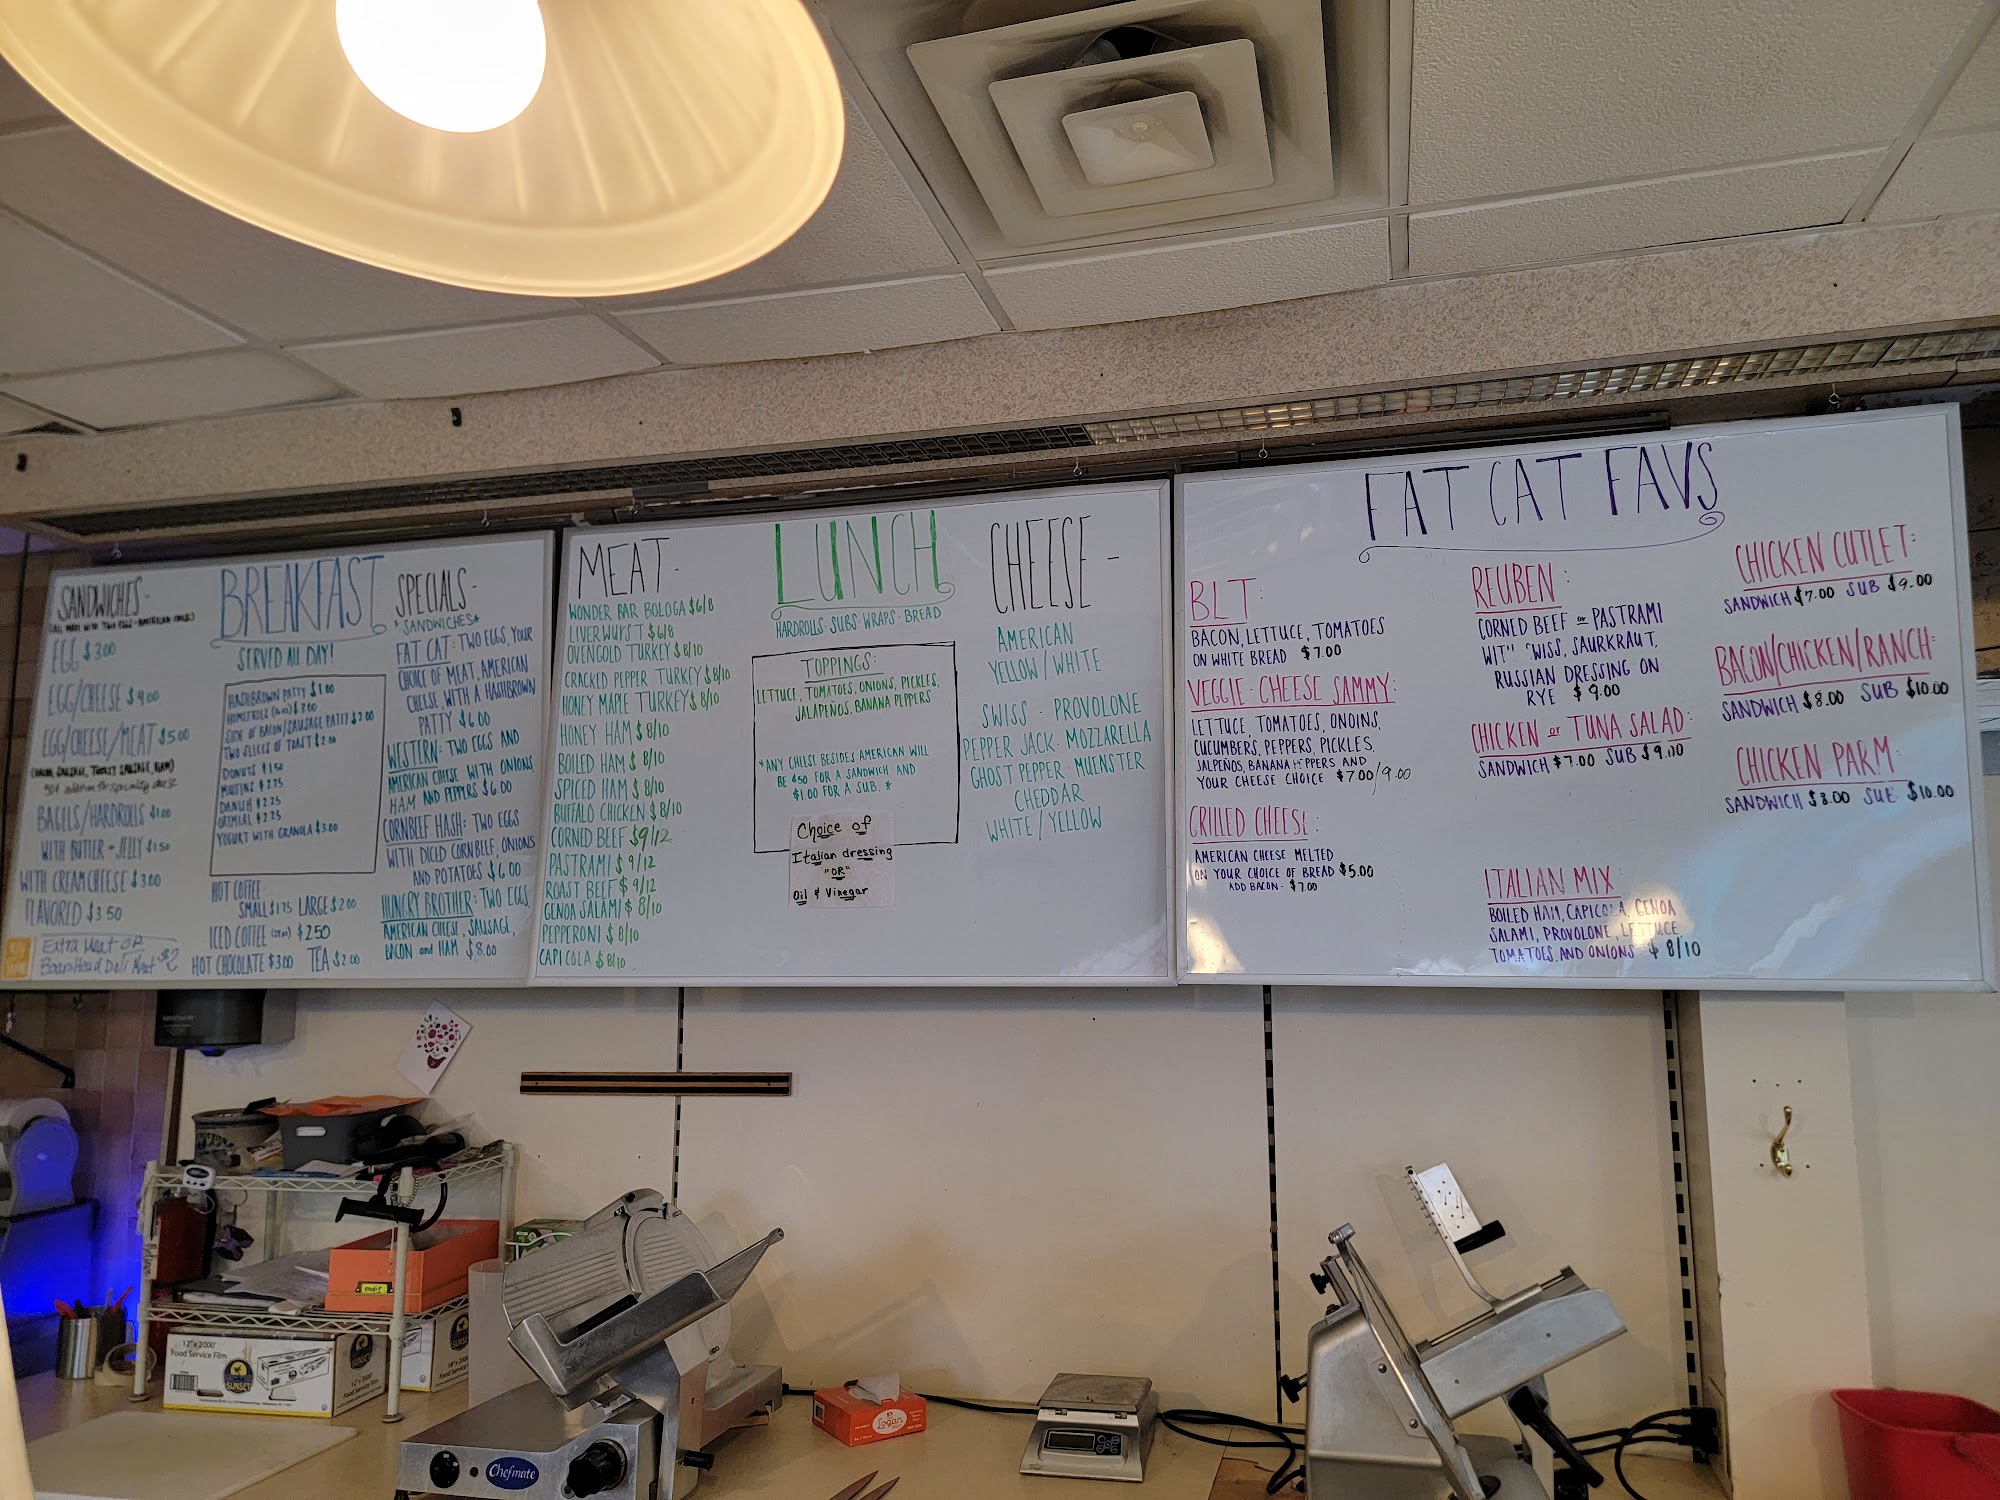 SANDWICHES-
EGG $3.00
EGG/CHEESE $4.00
EGG/CHEESE/MEAT $5.00
BAGELS/HARDROLLS $1.00
WITH BUTTER - JELLY $1.50
WITH CREAM CHEESE $3.00
FLAVORED $3.50
Extra Meat OR
Boars Head Deli Meat $2
BREAKFAST
SERVED ALL DAY!
HASHBROWN PATTY $1.00
HOMEFRIES $3.00
SIDE OF BACON/SAUSAGE PATTY $2.00
TWO SLICES OF TOAST $2.00
DONUTS $1.50
MUFFINS $2.25
DANISH $2.25
OATMEAL $2.25
YOGURT WITH GRANOLA $3.00
HOT COFFEE
SMALL $1.75 LARGE $2.00
ICED COFFEE $2.50
HOT CHOCOLATE $3.00 TEA $2.00
SPECIALS-
*SANDWICHES*
FAT CAT: TWO EGGS, YOUR
CHOICE OF MEAT, AMERICAN
CHEESE, WITH A HASHBROWN
PATTY $6.00
WESTERN: TWO EGGS AND
AMERICAN CHEESE WITH ONIONS,
HAM AND PEPPERS $6.00
CORNBEEF HASH: TWO EGGS
WITH DICED CORNBEEF, ONIONS
AND POTATOES $6.00
HUNGRY BROTHER: TWO EGGS,
AMERICAN CHEESE, SAUSAGE,
BACON and HAM $8.00
MEAT-
WONDER BAR BOLOGA $6/8
LIVERWURST $6/8
OVENGOLD TURKEY $8/10
CRACKED PEPPER TURKEY $8/10
HONEY MAPLE TURKEY $8/10
HONEY HAM $8/10
BOILED HAM $8/10
SPICED HAM $8/10
BUFFALO CHICKEN $8/10
CORNED BEEF $9/12
PASTRAMI $9/12
ROAST BEEF $9/12
GENOA SALAMI $8/10
PEPPERONI $8/10
CAPICOLA $8/10
LUNCH
HARDROLLS-SUBS-WRAPS-BREAD
TOPPINGS:
LETTUCE, TOMATOES, ONIONS, PICKLES,
JALAPEÑOS, BANANA PEPPERS
*ANY CHEESE BESIDES AMERICAN WILL
BE $.50 FOR A SANDWICH AND
$1.00 FOR A SUB.*
Choice of
Italian dressing
"OR"
Oil & Vinegar
CHEESE-
AMERICAN
YELLOW/WHITE
SWISS - PROVOLONE
PEPPER JACK- MOZZARELLA
GHOST PEPPER- MUENSTER
CHEDDAR
WHITE/YELLOW
FAT CAT FAVS
BLT:
BACON, LETTUCE, TOMATOES
ON WHITE BREAD $7.00
VEGGIE-CHEESE SAMMY:
LETTUCE, TOMATOES, ONOINS,
CUCUMBERS, PEPPERS, PICKLES,
JALPEÑOS, BANANA PEPPERS AND
YOUR CHEESE CHOICE $7.00/9.00
GRILLED CHEESE:
AMERICAN CHEESE MELTED
ON YOUR CHOICE OF BREAD $5.00
ADD BACON- $7.00
REUBEN:
CORNED BEEF or PASTRAMI
WITH SWISS, SAURKRAUT,
RUSSIAN DRESSING ON
RYE $9.00
CHICKEN or TUNA SALAD:
SANDWICH $7.00 SUB $9.00
ITALIAN MIX:
BOILED HAM, CAPICOLA, GENOA
SALAMI, PROVOLONE, LETTUCE,
TOMATOES, AND ONIONS $8/10
CHICKEN CUTLET:
SANDWICH $7.00 SUB $9.00
BACON/CHICKEN/RANCH:
SANDWICH $8.00 SUB $10.00
CHICKEN PARM:
SANDWICH $8.00 SUB $10.00
12" x 2000'
Food Service Film
SUNSET
Chefmate
Logan